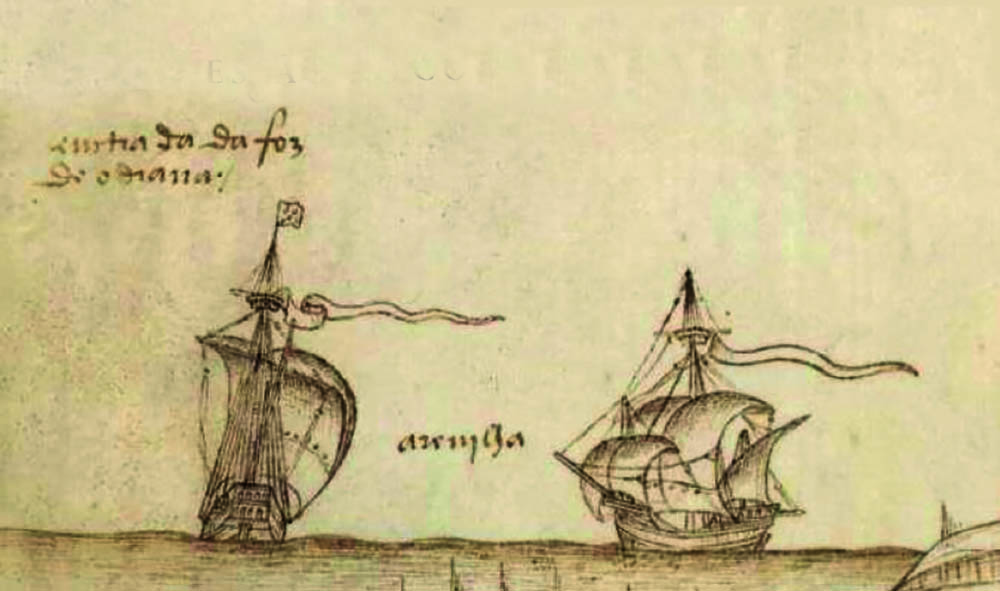 emtra da da foz
de odiana·/
arenjlha